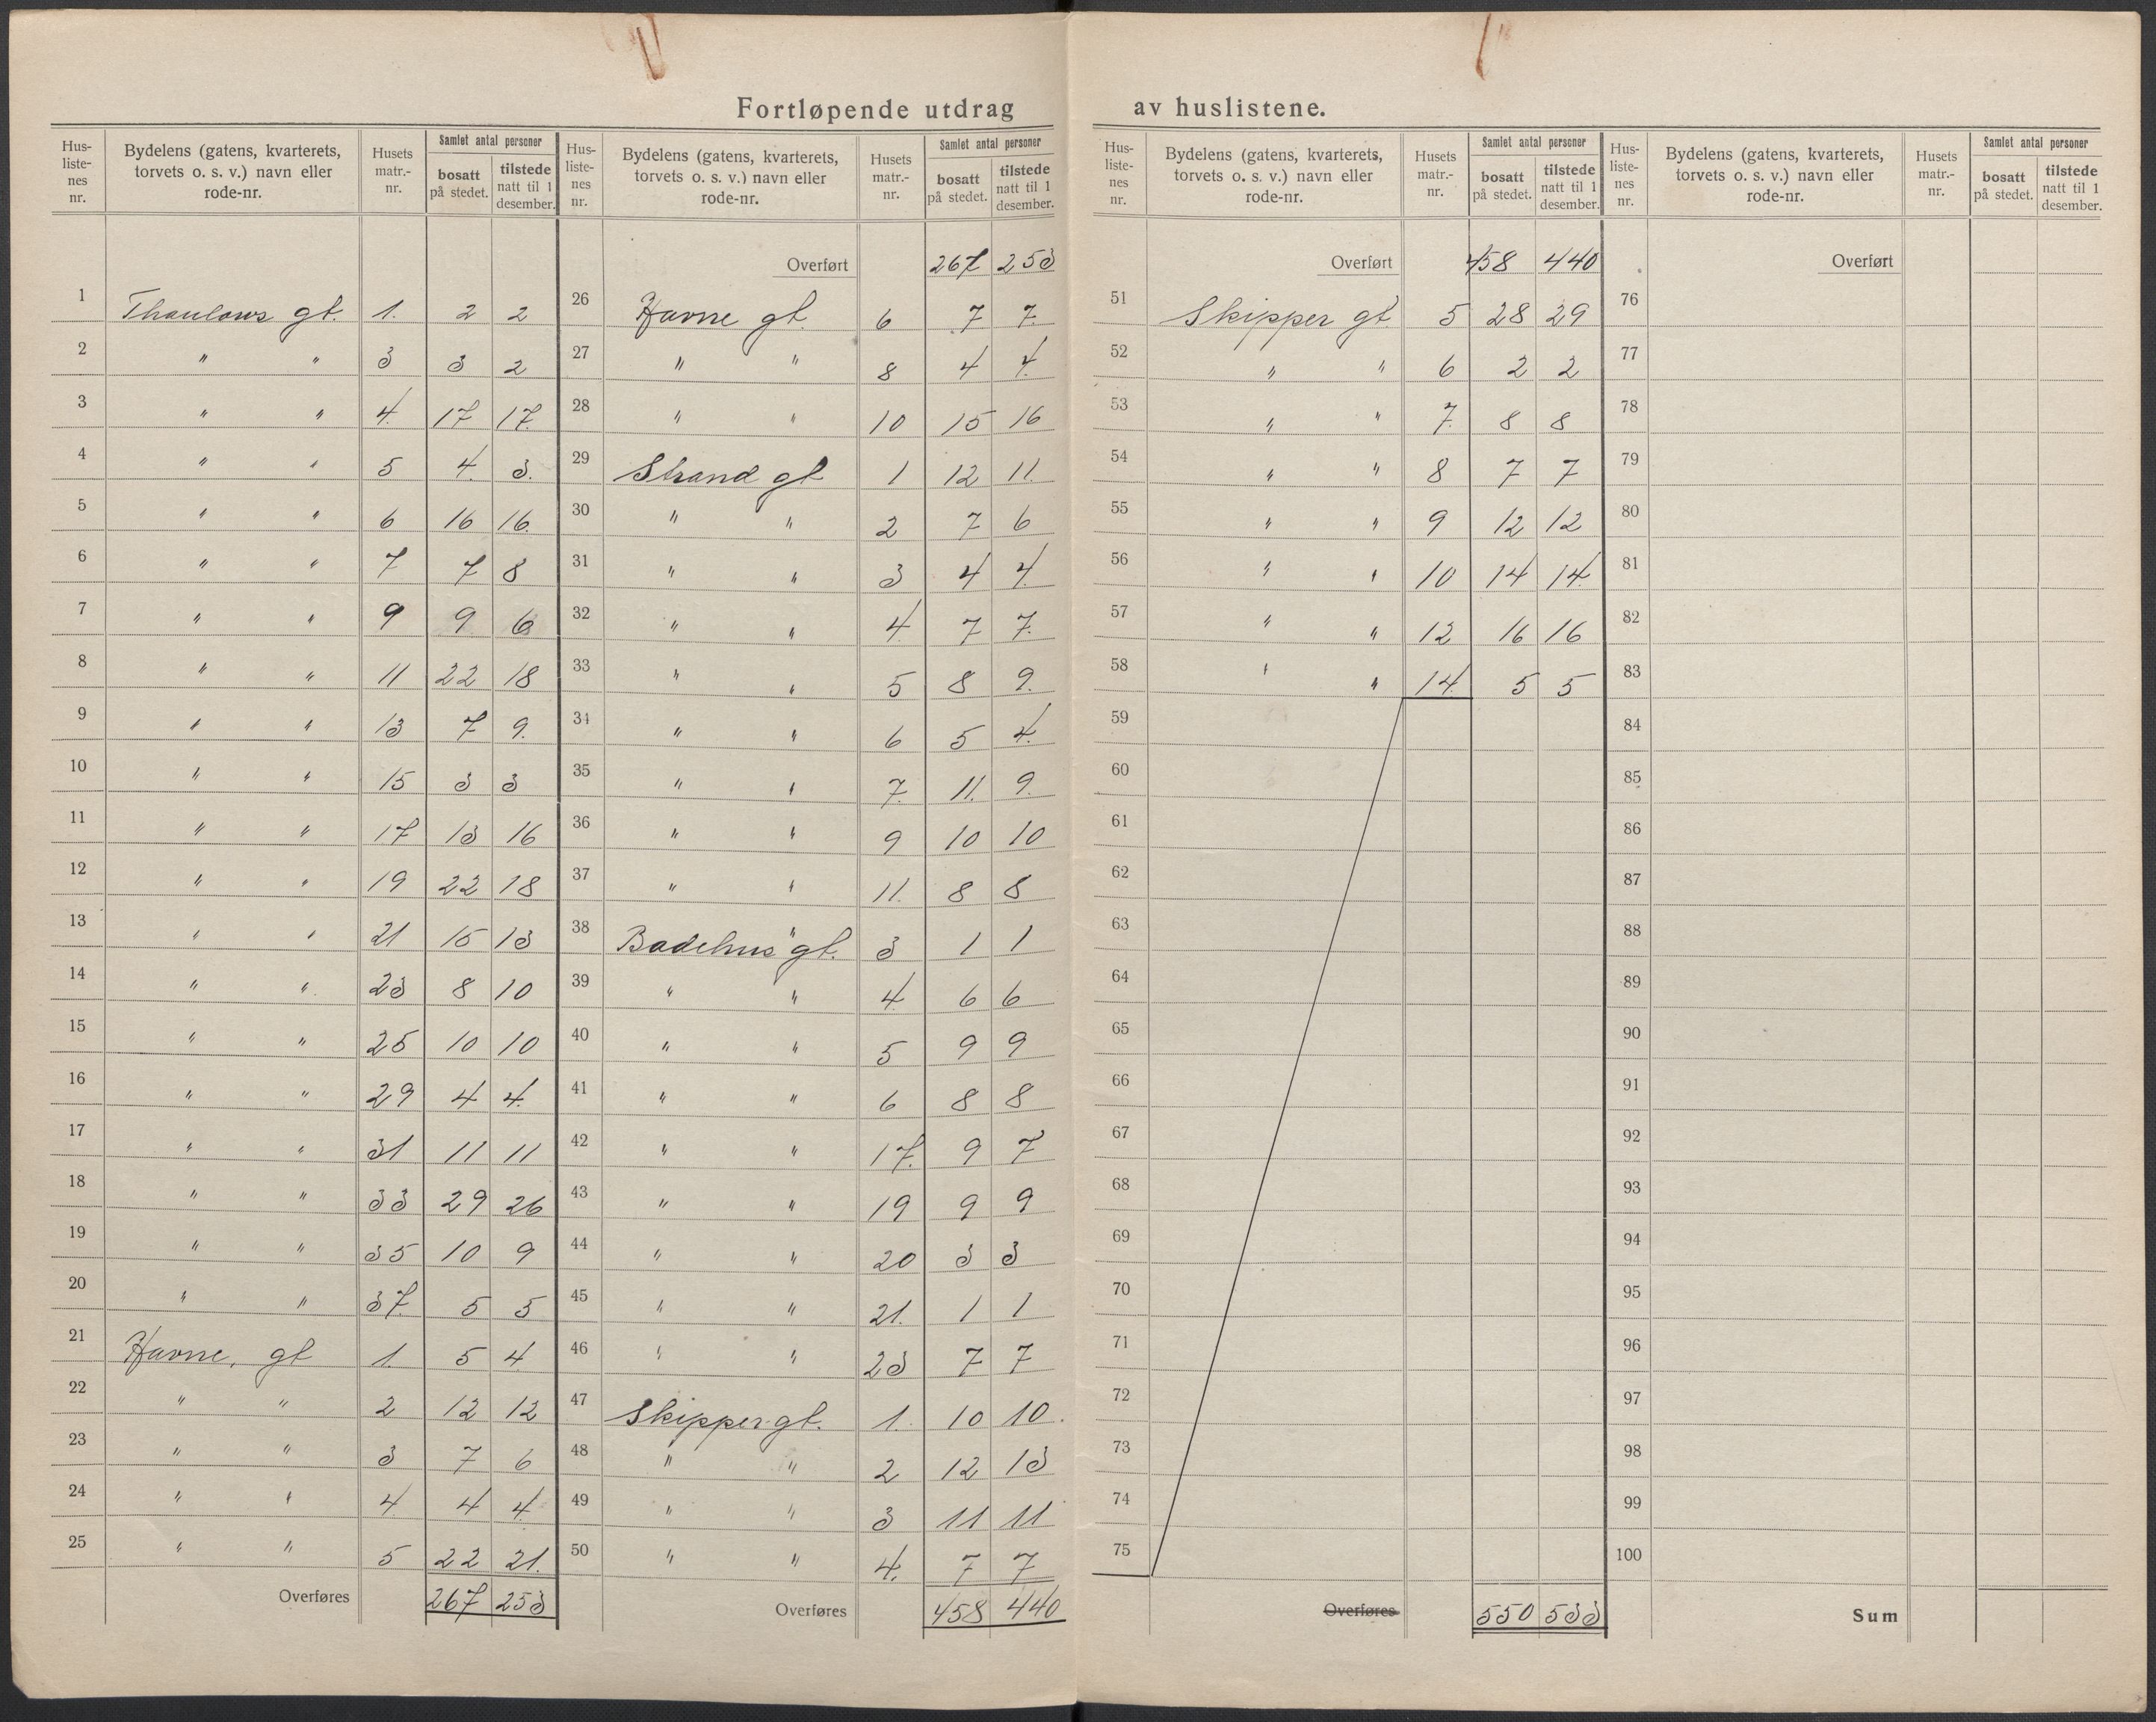 Fortløpende utdrag av huslistene.
Hus-liste-nes nr. | Bydelens (gatens, kvarterets, torvets o. s. v.) navn eller rode-nr. | Husets matr.-nr. | Samlet antal personer: bosatt på stedet. | tilstede natt til 1 desember.
1 Thaulows gt. 1. 2 2
2 " " 3 3 2
3 " " 4. 17 17.
4 " " 5 4. 3.
5 " " 6 16 16.
6 " " 7 7 8
7 " " 9 9 6
8 " " 11 22 18
9 " " 13 7 9.
10 " " 15 3 3
11 " " 17 13 16
12 " " 19 22 18
13 " " 21 15 13
14 " " 23 8 10
15 " " 25 10 10
16 " " 29 4 4.
17 " " 31 11 11
18 " " 33 29 26
19 " " 35 10 9
20 " " 37. 5 5
21 Havne. gt 1. 5 4
22 " " 2 12 12
23 " " 3 7 6
24 " " 4. 4 4.
25 " " 5 22 21.
Overføres 267 253
Hus-liste-nes nr. | Bydelens (gatens, kvarterets, torvets o. s. v.) navn eller rode-nr. | Husets matr.-nr. | Samlet antal personer: bosatt på stedet. | tilstede natt til 1 desember.
Overført 267 253
26 Havne gt. 6 7 7.
27 " " 8 4 4.
28 " " 10 15 16
29 Strand gt 1 12 11.
30 " " 2 7 6
31 " " 3 4 4.
32 " " 4. 7 7.
33 " " 5 8 9.
34 " " 6 5 4.
35 " " 7. 11. 9.
36 " " 9 10 10
37 " " 11. 8 8
38 Badehus gt. 3 1 1
39 " " 4. 6 6
40 " " 5 9 9
41 " " 6 8 8
42 " " 17. 9 7
43 " " 19 9 9
44 " " 20 3 3
45 " " 21. 1 1
46 " " 23 7 7
47 Skipper gt. 1. 10 10.
48 " " 2 12 13
49 " " 3 11 11
50 " " 4. 7 7
Overføres 458 440
Hus-liste-nes nr. | Bydelens (gatens, kvarterets, torvets o. s. v.) navn eller rode-nr. | Husets matr.-nr. | Samlet antal personer: bosatt på stedet. | tilstede natt til 1 desember.
Overført 458 440
51 Skipper gt. 5 28 29
52 " " 6 2 2
53 " " 7. 8 8
54 " " 8 7 7
55 " " 9 12 12
56 " " 10 14 14.
57 " " 12 16 16
58 " " 14. 5 5
59
60
61
62
63
64
65
66
67
68
69
70
71
72
73
74
75
Overføres 550 533
Hus-liste-nes nr. | Bydelens (gatens, kvarterets, torvets o. s. v.) navn eller rode-nr. | Husets matr.-nr. | Samlet antal personer: bosatt på stedet. | tilstede natt til 1 desember.
Overført
76
77
78
79
80
81
82
83
84
85
86
87
88
89
90
91
92
93
94
95
96
97
98
99
100
Sum